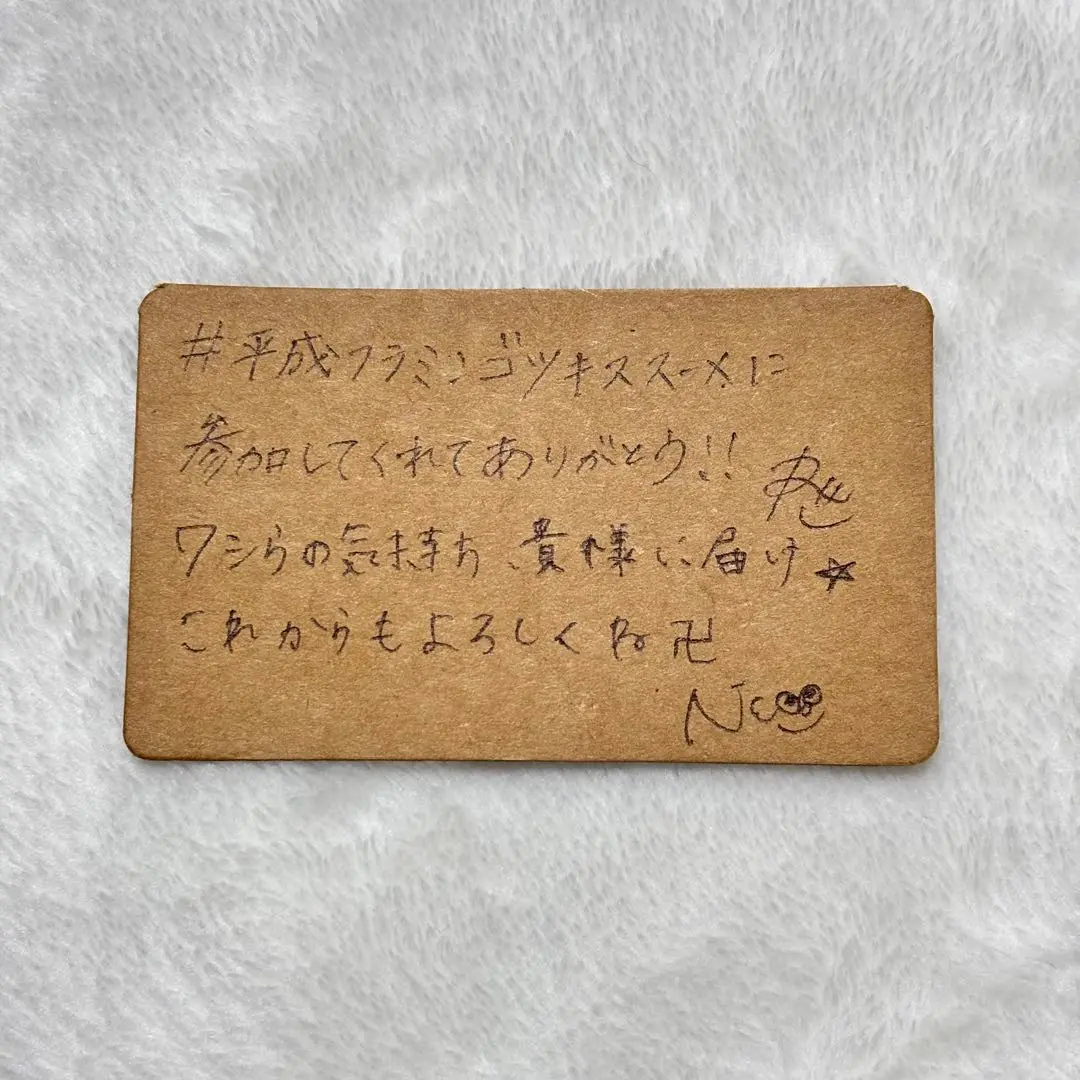 #平成フラミンゴツキススーメに
参加してくれてありがとう!!
ワシらの気持ち、貴様に届け☆
これからもよろしくね卍